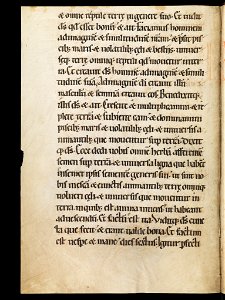 & omne reptile terre in genere suo. Et vidit
ds qđ esset bonu & ait. faciamus hominem
ad imaginē & similitudinē nram. & psit pisci
bus maris & volatilib; celi & bestiis. univer
seq; terre omniq; reptili qđ movetur in ter
ra. Et creavit ds hominē ad imaginē & simili
tudinē suā. ad imaginē di creavit illū.
masculū & feminā creavit eos. Benedixitq;
illis ds & ait. Crescite & multiplicamini & re
plete terrā & subicite eam & dominamini
piscib; maris & volatilib; celi & universis a
nimantib; que moventur sup terrā. Dixit
q; ds. Ecce dedi vobis omne herbā afferente
semen sup terrā & universa ligna que habent
in semet ipsis semente generis sui. ut sint vo
bis in escā & cunctis animantib; terre omniq;
volucri celi & universis que moventur in
terra. in quib; est anima vivens ut habeant
ad vescendū. Et factū est ita. Viditq; ds cunc
ta que fecit & erant valde bona. Et factum
est vespe & mane dies sextus. Igitur pfecti